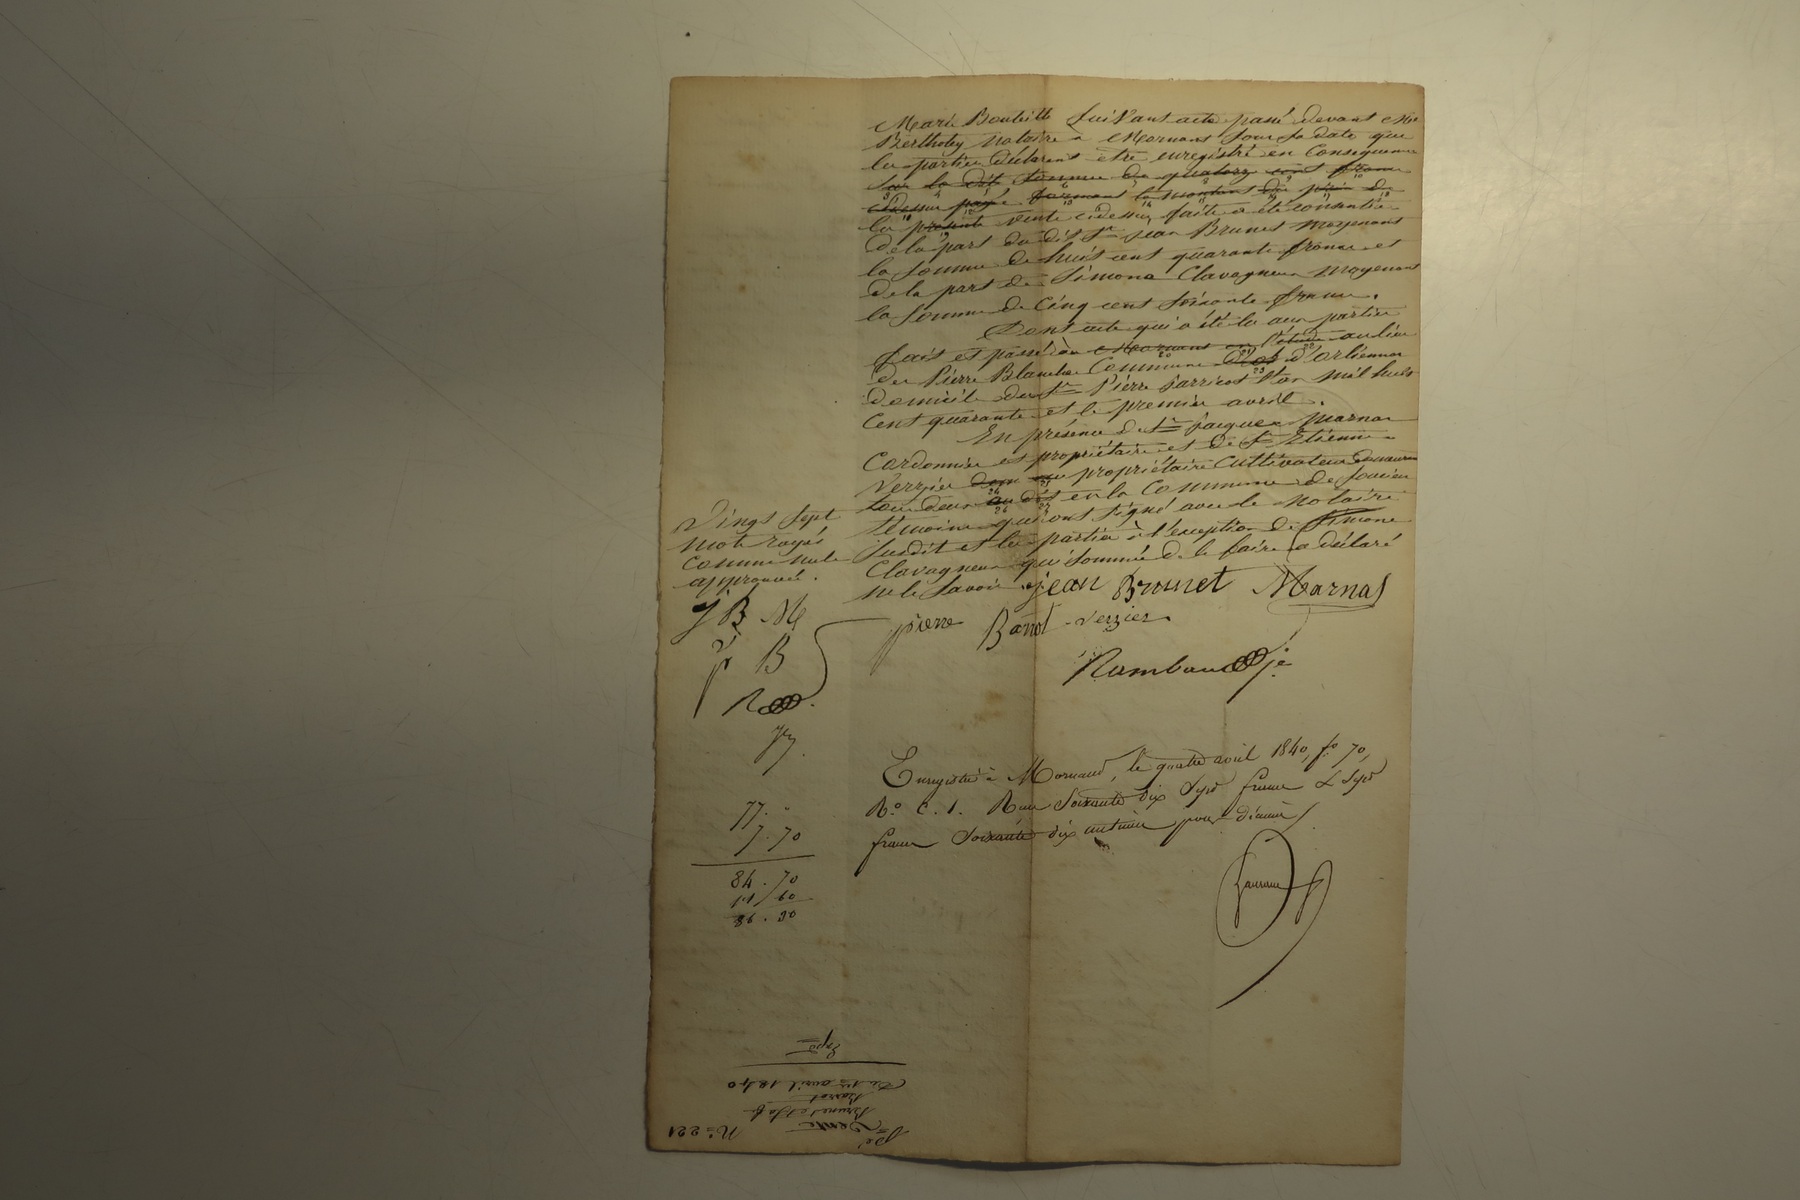 Marie Bouteille suivant acte passé devant Me
Bertholey notaire à Mornant sous sa date que
les parties déclarent être enregistré en conséquence
sur la dite somme de quatorze cent francs
cidessus payé formant le montant du prix de
la présente vente cidessus faite a été consentie
de la part du dit Sr Jean Brunet moyenant
la somme de huit cent quarante francs et
de la part de Simone Clavagneux moyenant
la somme de cinq cent soixante francs.
Dont acte qui a été lu aux parties
fait et passé à Mornant en l'étude au lieu
de Pierre Blanche Commune d'Orliénas
domicile du Sr Pierre l'an mil huit
cent quarante et le premier avril.
En présence de Sr Jacques Marnas
Cordonnier et propriétaire et de Sr Etienne
Verzier propriétaire Cultivateur demeurant
tous deux en la Commune de Soucieu
témoins qui ont signé avec le notaire
susdit et les parties à l'exception de Simone
Clavagneux qui sommée de le faire a déclaré
ne le savoir
Vingt sept
mots rayés
comme nuls
approuvés.
jean Brunet Marnas
pierre Barriot Verzier
Rambaud je
J B M
V
p B
R
Enregistré à Mornant, le quatre avril 1840, fo 70,
Ro C. 1. Reçu soixante dix sept francs & sept
francs soixante dix centimes pour décime
77. "
7. 70
84. 70
Expé
Du 1er avril 1840
Brunet
Vente
No 221